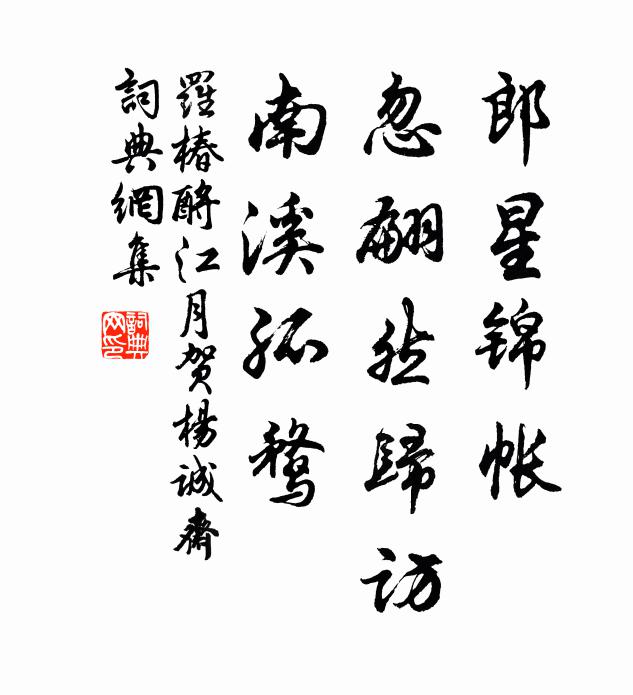 郎星锦帐
忽翩然歸访
南溪孤鶩
羅椿酹江月贺楊诚齋
詞典網集
詞典网印